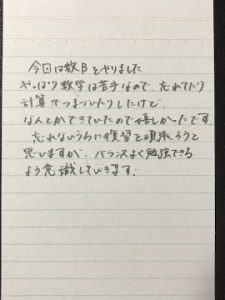 今回は数Bをやりました
やっぱり数学は苦手なので、忘れてたり
計算でつまづいたりしたけど、
なんとかできていたので嬉しかったです。
忘れないうちに復習を頑張ろうと
思いますが、バランスよく勉強できる
よう意識していきます。